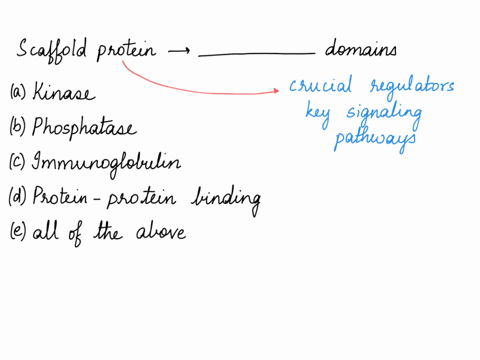 Scaffold protein → __________ domains
crucial regulators
key signaling
pathways
(a) Kinase
(b) Phosphatase
(c) Immunoglobulin
(d) Protein - protein binding
(e) all of the above